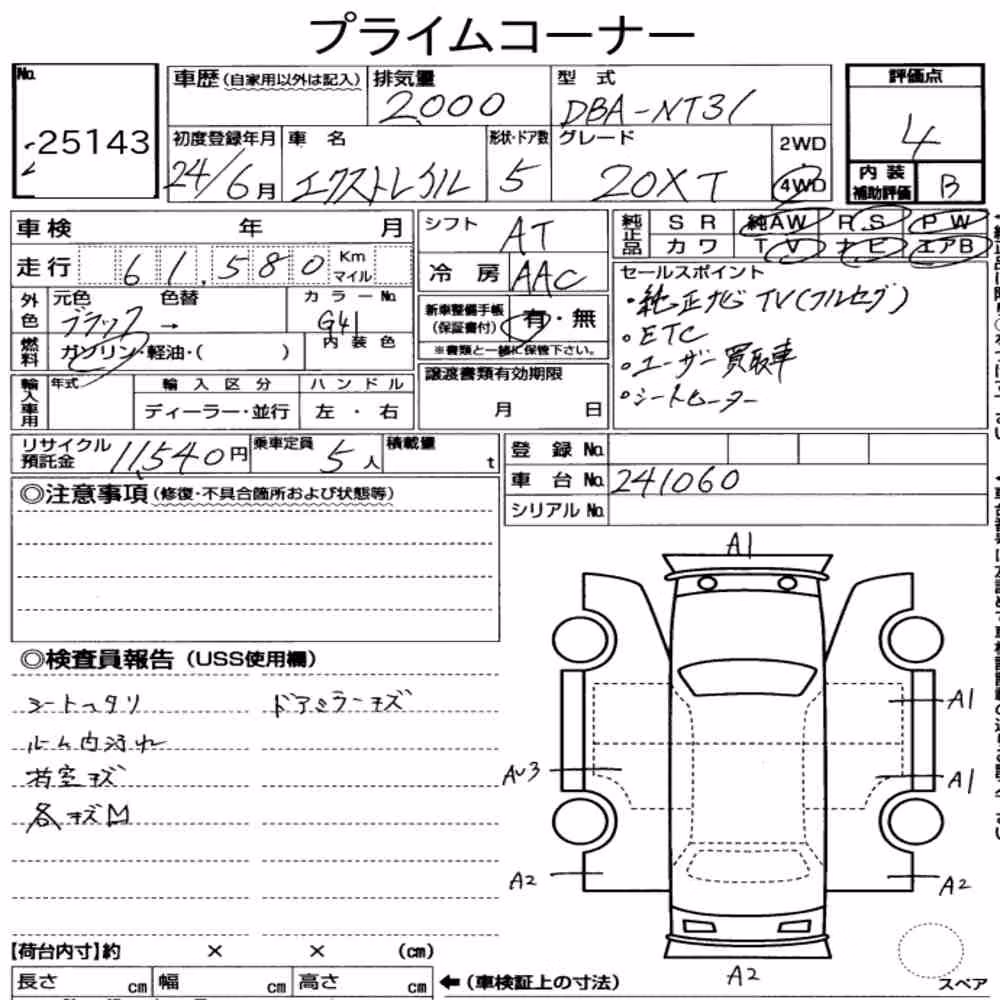 プライムコーナー
No.
25143
車歴(自家用以外は記入)
排気量
2000
型 式
DBA-NT31
評価点
4
初度登録年月
24/6月
車 名
エクストレイル
形状・ドア数
5
グレード
20XT
2WD
4WD
内 装
補助評価
B
車検 年 月
シフト
AT
純正品
SR 純AW RS PW
カワ TV ナビ エアB
走行 61.580 Km
マイル
冷 房
AAC
セールスポイント
・純正ナビTV(フルセグ)
・ETC
・ユーザー買取車
・シートヒーター
外色
元色 色替
ブラック →
カラーNo.
G41
新車整備手帳
(保証書付)
有・無
※書類と一緒に保管下さい。
燃料
ガソリン・軽油・( )
内装色
輸入車用
年式
輸入区分
ハンドル
ディーラー・並行
左・右
譲渡書類有効期限
月 日
リサイクル
預託金
11,540円
乗車定員
5人
積載量
t
登 録 No.
車 台 No.
241060
シリアル No.
◎注意事項(修復・不具合箇所および状態等)
◎検査員報告(USS使用欄)
ドアミラーキズ
ルーム内汚れ
荷室キズ
各キズ凹
A1
A1
AU3
A1
A2
A2
A2
スペア
【荷台内寸】約 × × (cm)
長さ cm
幅 cm
高さ cm
←(車検証上の寸法)